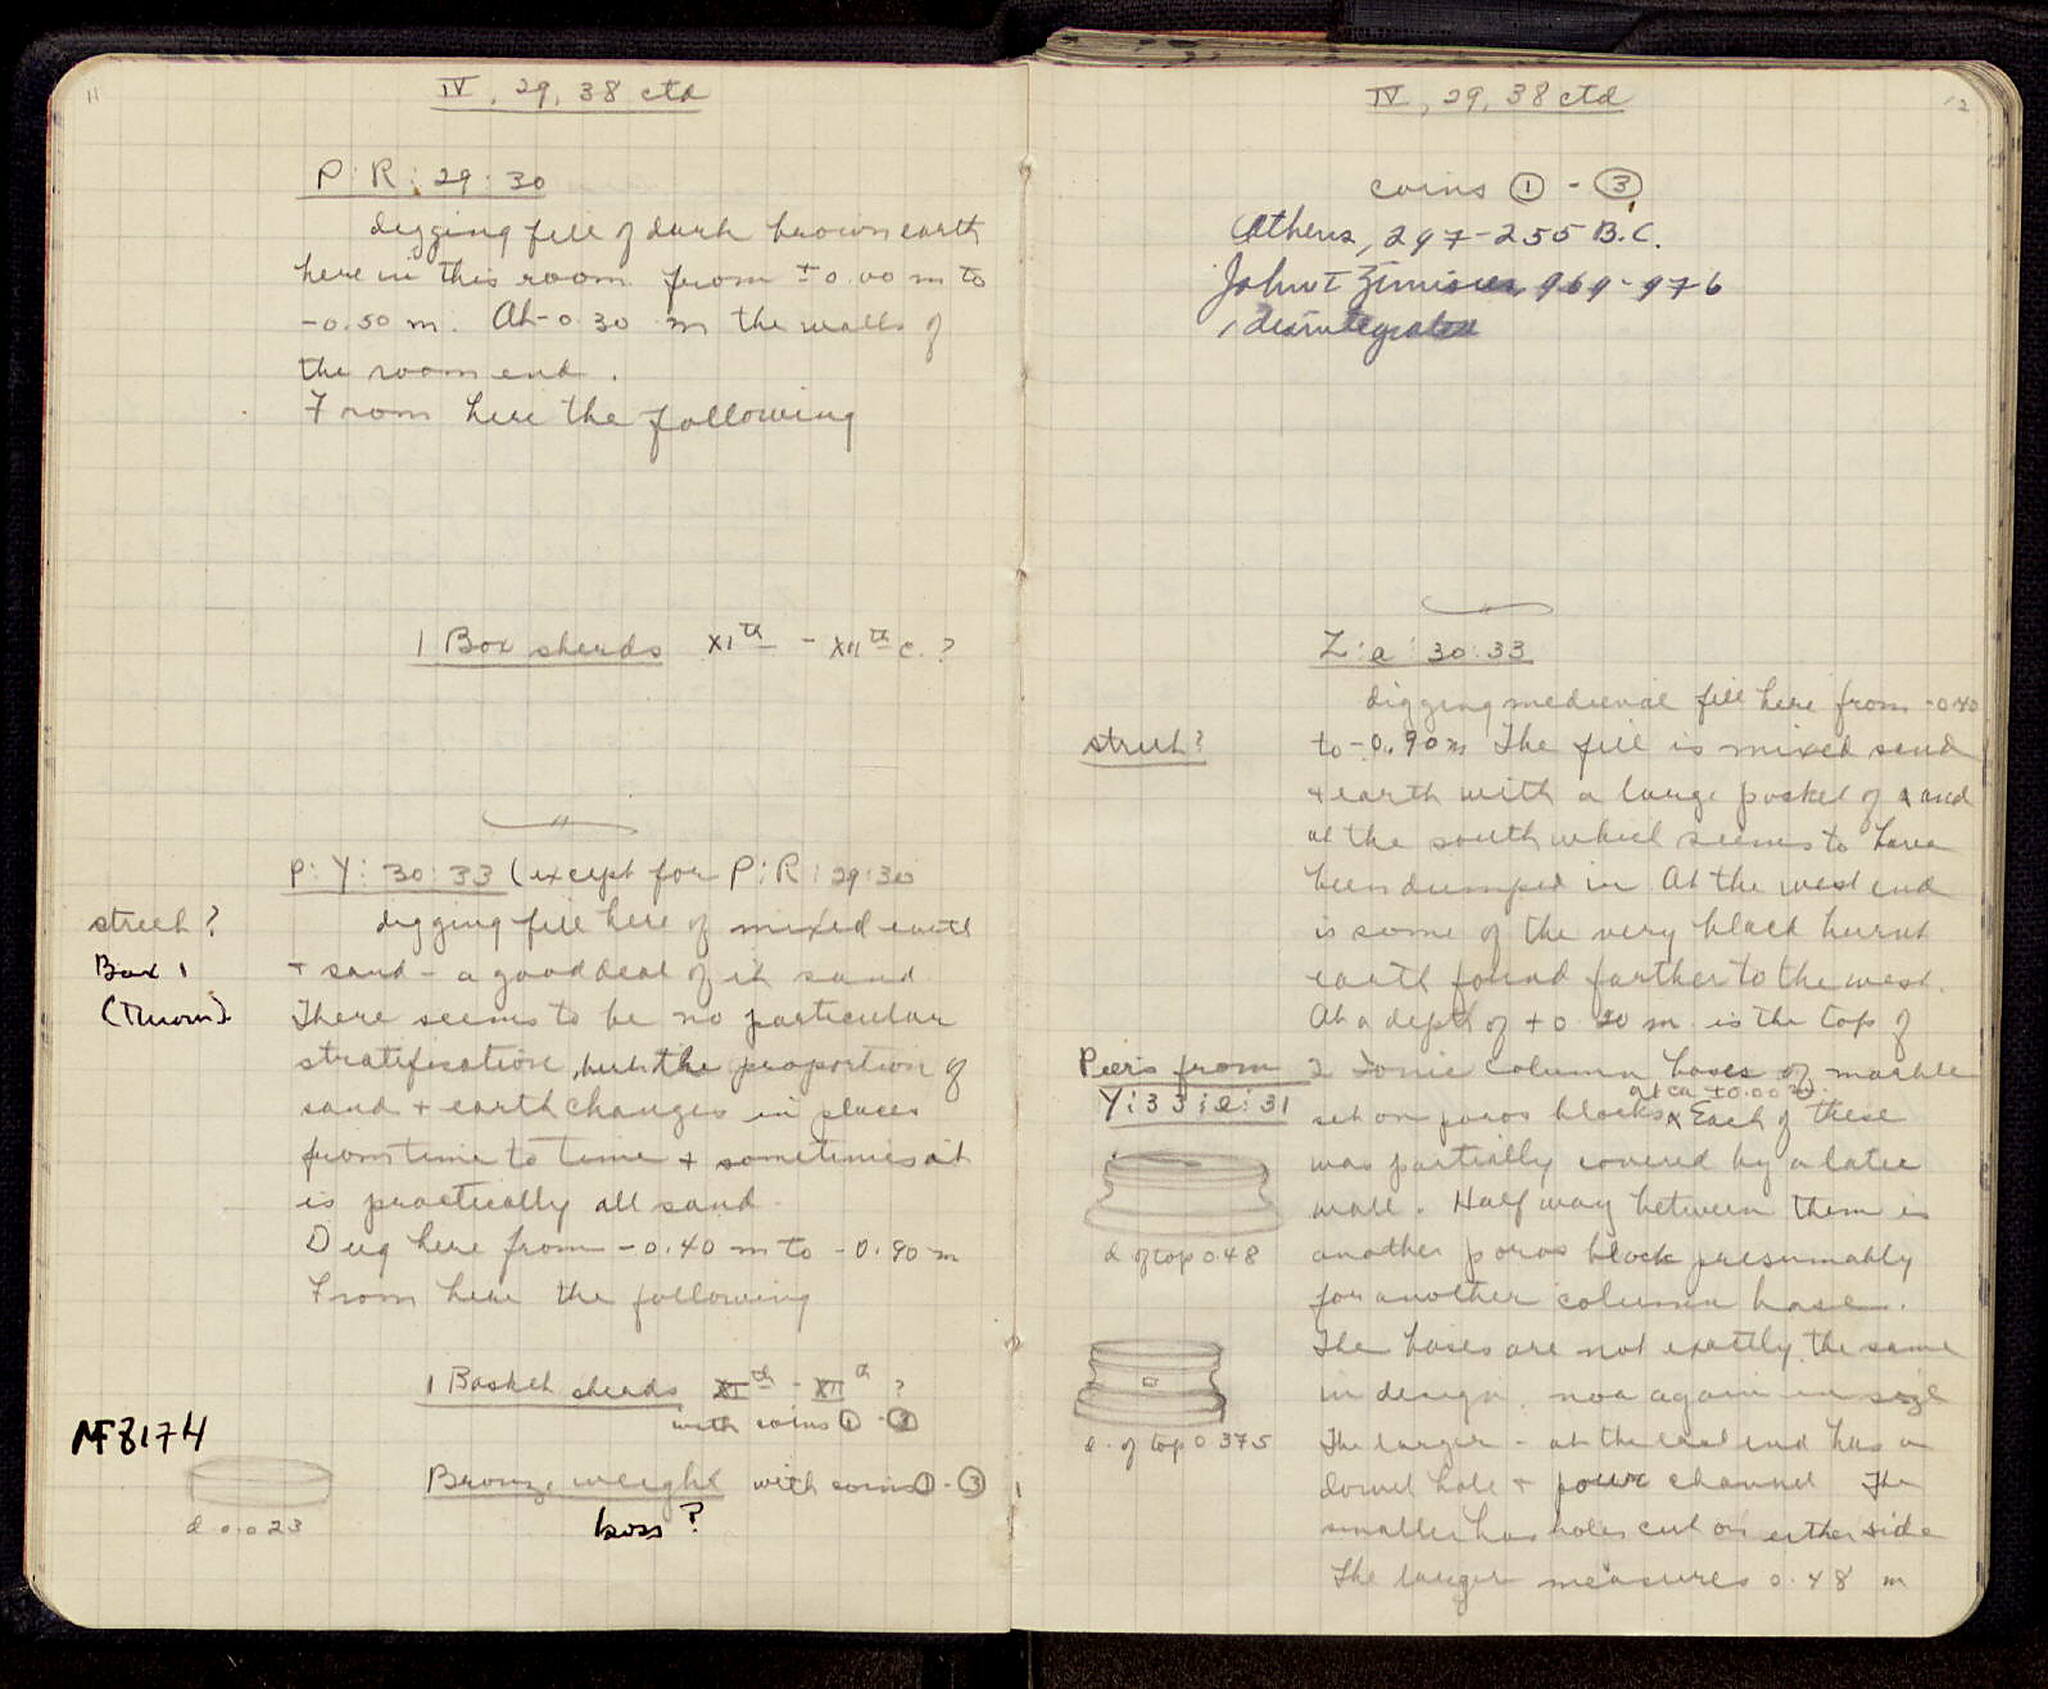 11
IV, 29, 38 ctd
P:R:29:30
digging fill of dark brown earth
here in this room from ±0.00 m to
-0.50 m. At -0.30 m the walls of
the room end.
From here the following
1 Box sherds XIth - XIIth c.?
P:Y:30:33 (except for P:R:29:30
street?
digging fill here of mixed earth
Box 1
+ sand - a good deal of it sand
There seems to be no particular
stratification, but the proportion of
sand + earth changes in places
from time to time + sometimes it
is practically all sand.
Dug here from -0.40 m to -0.90 m
From here the following
1 Basket sherds XIth - XIIth ?
with coins ① - ③
MF8174
Bronze weight with coins ① - ③
boss?
d 0.023
12
IV, 29, 38 ctd
coins ① - ③
Athens, 297-255 B.C.
John I Zimisces, 969-976
1 disintegrated
Z:e:30:33
digging medieval fill here from -0.40
street?
to -0.90 m The fill is mixed sand
+ earth with a large pocket of sand
at the south which seems to have
been dumped in. At the west end
is some of the very black burnt
earth found farther to the west.
At a depth of +0.20 m is the top of
Piers from
Y:33:e:31
2 Ionic column bases of marble
at ca +0.00 m
set on poros blocks. Each of these
was partially covered by a later
wall. Half way between them is
d of top 0.48
another poros block presumably
for another column base.
The bases are not exactly the same
in design, nor again in size
d. of top 0.375
The larger - at the east end has a
dowel hole + pour channel The
smaller has holes cut on either side
The larger measures 0.48 m